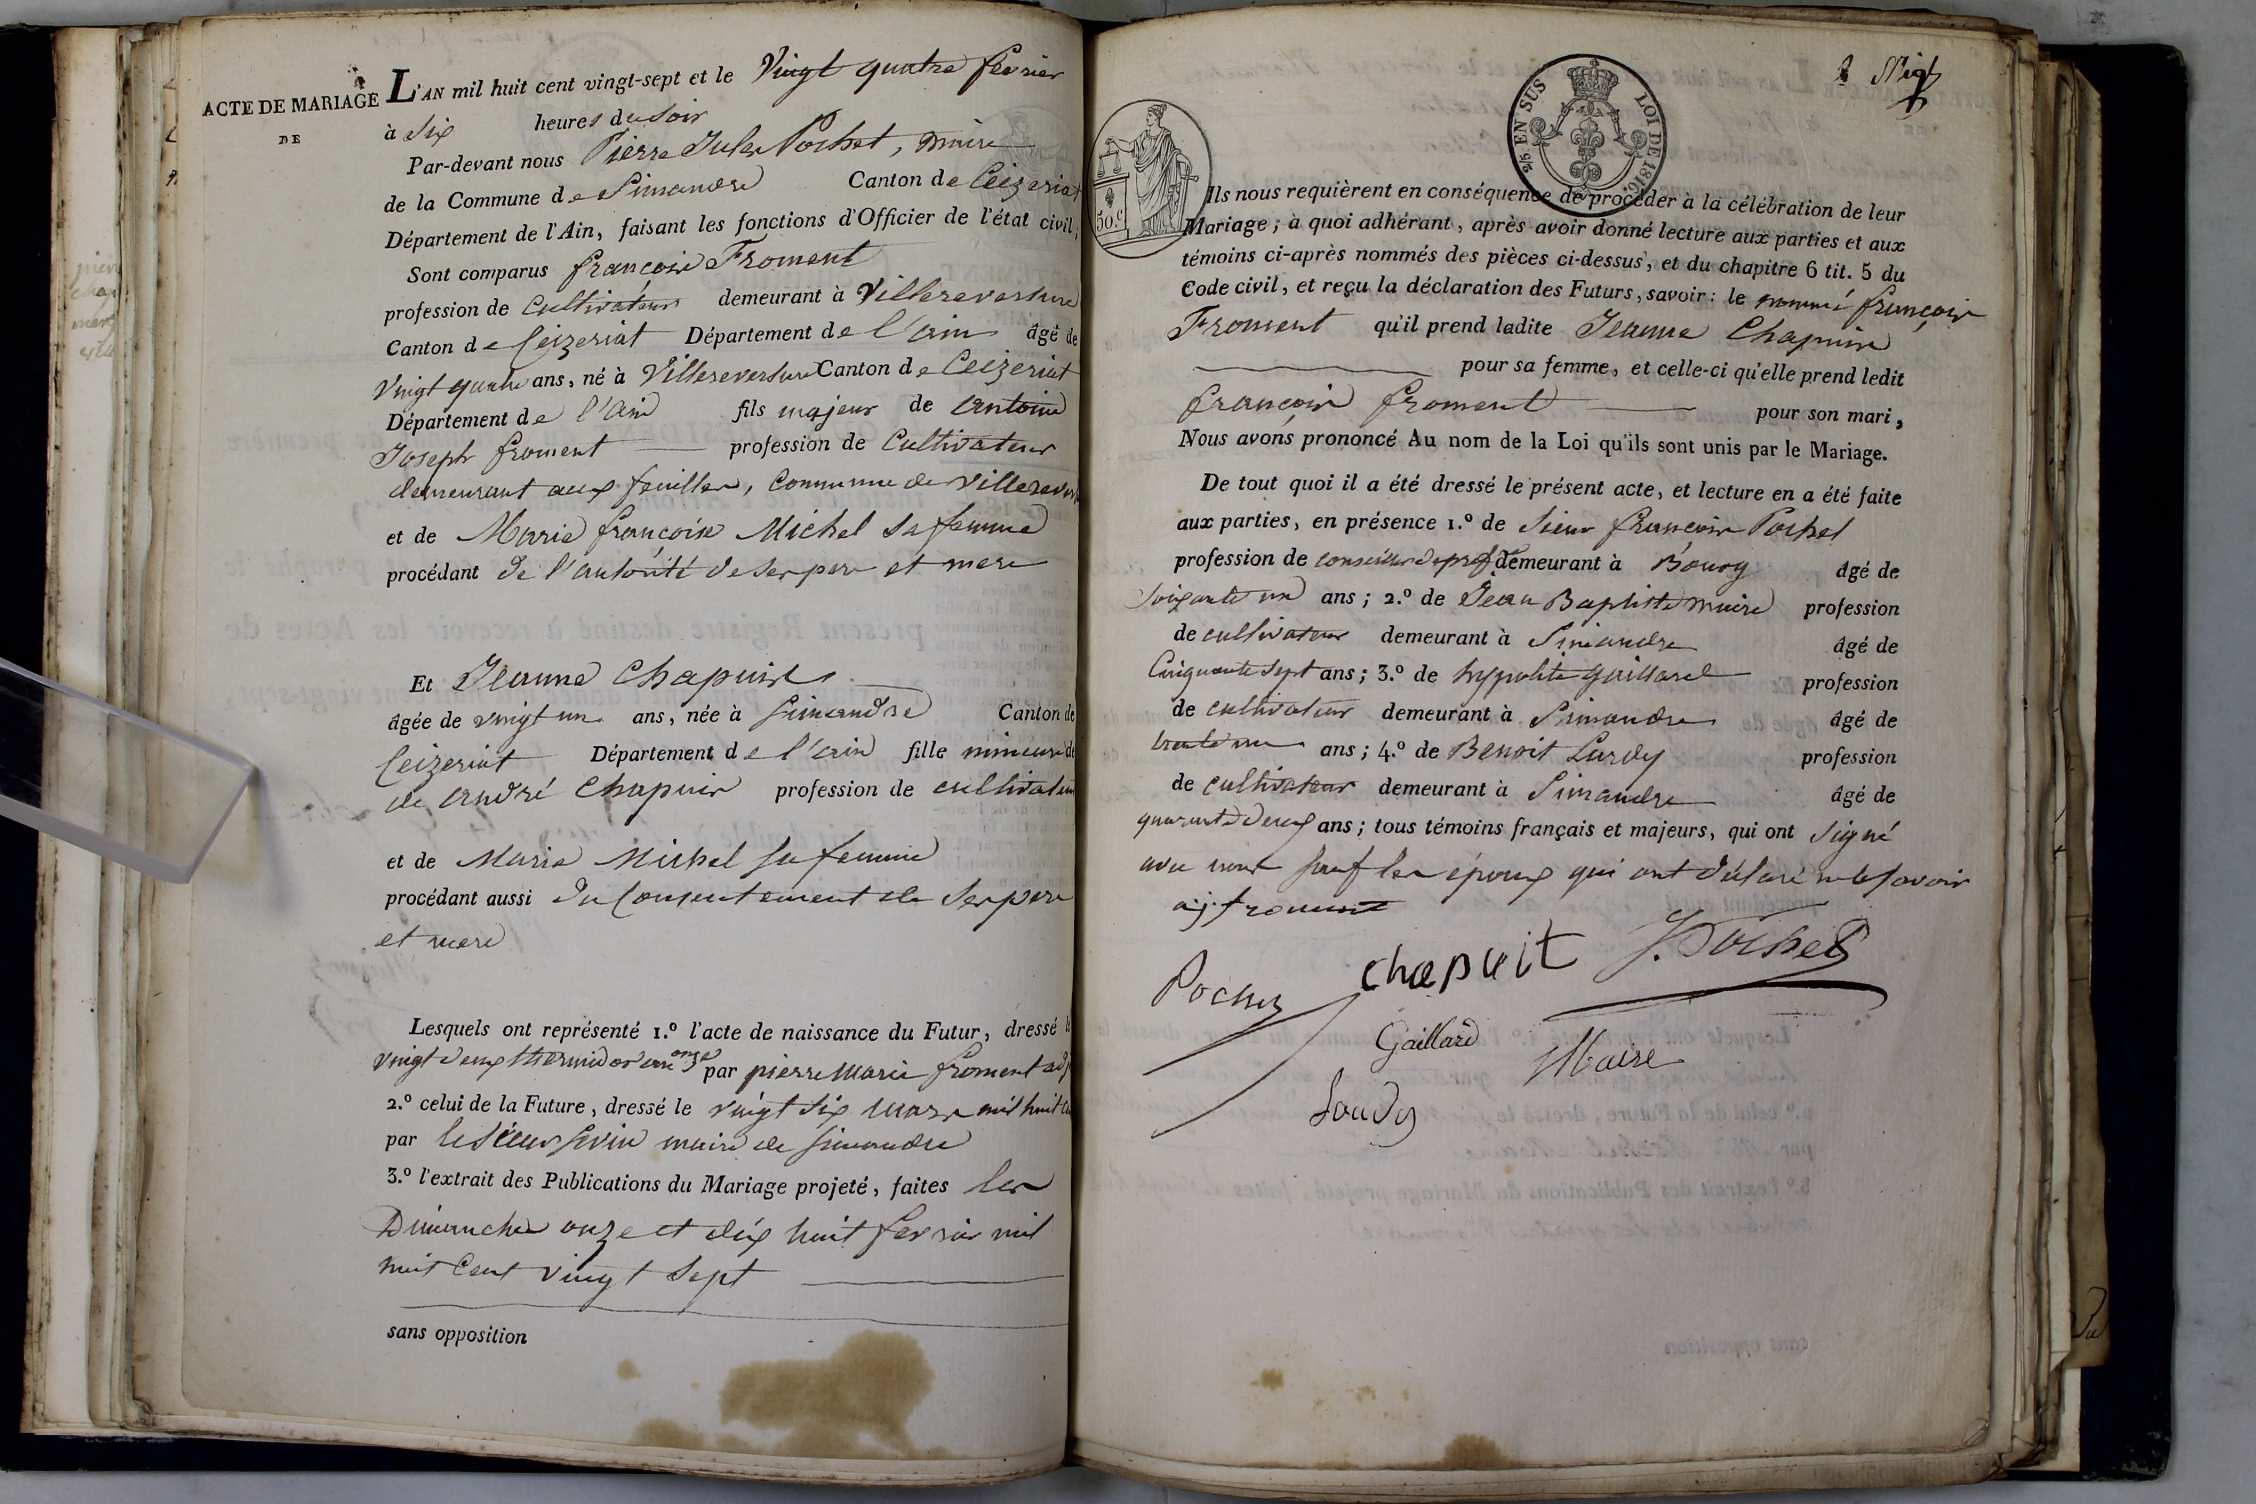 ACTE DE MARIAGE
DE
L'AN mil huit cent vingt-sept et le Vingt quatre fevrier
à Six heures du Soir
Par-devant nous Pierre Jules Pochet, maire
de la Commune de Simandre Canton de Ceizeriat
Département de l'Ain, faisant les fonctions d'Officier de l'état civil,
Sont comparus françois Froment
profession de Cultivateur demeurant à Villereversure
Canton de Ceizeriat Département de l'ain âgé de
Vingt quatre ans, né à Villereversure Canton de Ceizeriat
Département de l'ain fils majeur de antoine
Joseph froment profession de Cultivateur
demeurant aux feuilles, Commune de Villerevers
et de Marie françoise Michel sa femme
procédant de l'autorité de ses pere et mere
Et Jeanne Chapuis
âgée de vingt un ans, née à Simandre Canton de
Ceizeriat Département de l'ain fille mineure de
de andré Chapuis profession de cultivateur
et de Marie Michel sa femme
procédant aussi du Consentement de Ses pere
et mere
Lesquels ont représenté 1.º l'acte de naissance du Futur, dressé le
vingt deux thermidor an onze par pierre Marie froment adj
2.º celui de la Future, dressé le vingt six mars mil huit
par le Sieur maire de Simandre
3.º l'extrait des Publications du Mariage projeté, faites les
Dimanche onze et dix huit fevrier mil
huit Cent vingt Sept
sans opposition
2/5 EN SUS
LOI DE 1816.
50.c
Ils nous requièrent en conséquence de procéder à la célébration de leur
Mariage; à quoi adhérant, après avoir donné lecture aux parties et aux
témoins ci-après nommés des pièces ci-dessus, et du chapitre 6 tit. 5 du
Code civil, et reçu la déclaration des Futurs, savoir: le nommé françois
Froment qu'il prend ladite Jeanne Chapuis
pour sa femme, et celle-ci qu'elle prend ledit
françois froment pour son mari,
Nous avons prononcé Au nom de la Loi qu'ils sont unis par le Mariage.
De tout quoi il a été dressé le présent acte, et lecture en a été faite
aux parties, en présence 1.º de Sieur françois Pochet
profession de conseiller de pref demeurant à Bourg âgé de
Soixante un ans; 2.º de Jean Baptiste maire profession
de cultivateur demeurant à Simandre âgé de
Cinquante Sept ans; 3.º de hypolite gaillard profession
de cultivateur demeurant à Simandre âgé de
trente un ans; 4.º de Benoit Lardy profession
de cultivateur demeurant à Simandre âgé de
quarante deux ans; tous témoins français et majeurs, qui ont Signé
avec nous sauf les époux qui ont déclaré ne le savoir
a.j. froment
Pochet
chapuit
J. Pochet
Gaillard
Maire